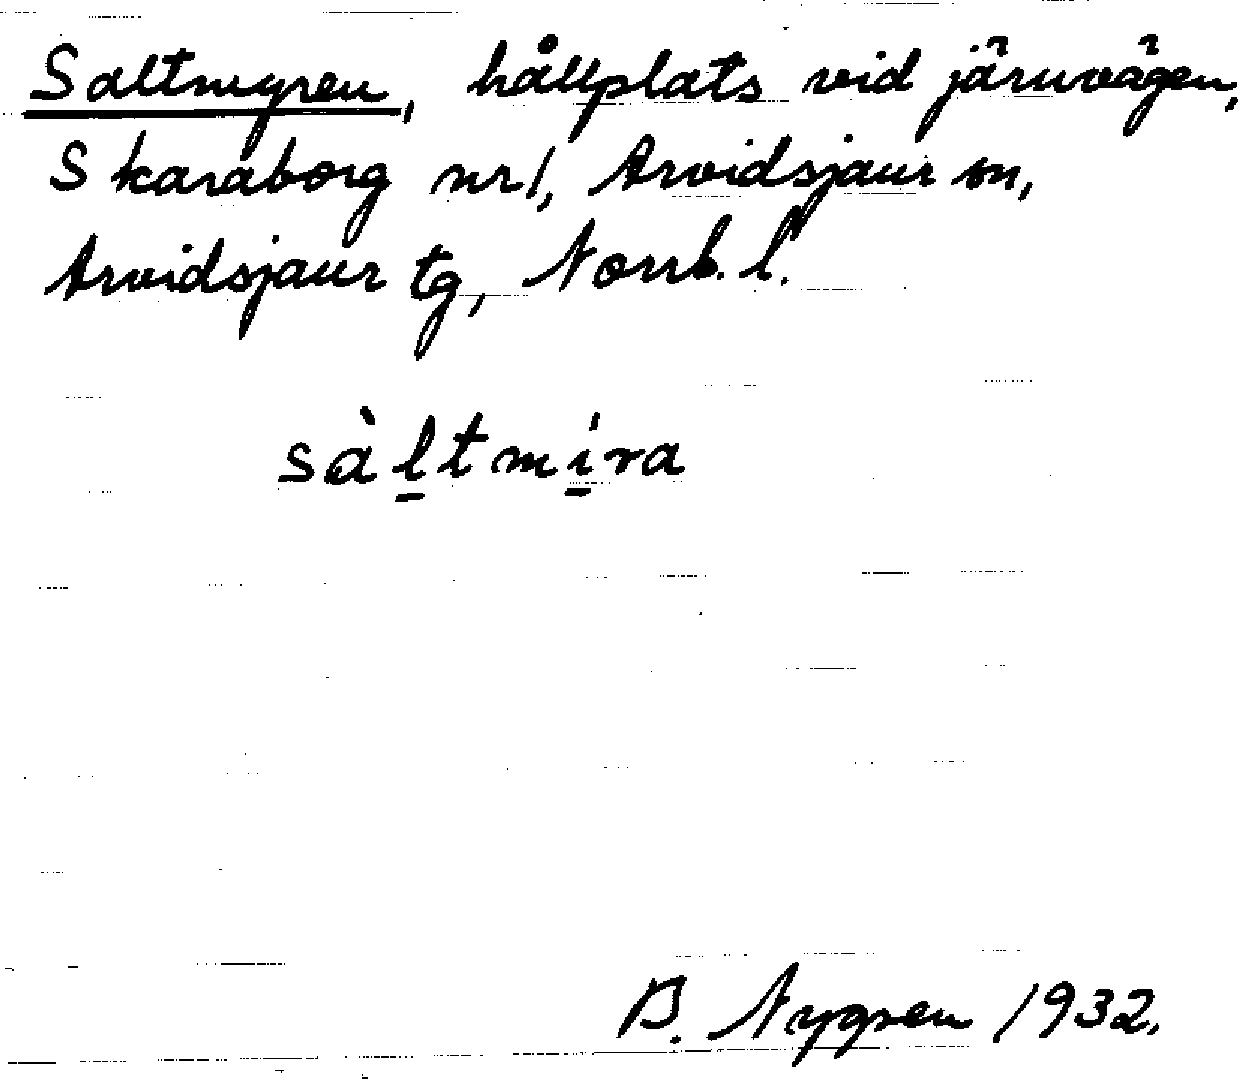 Saltmyren, hållplats vid järnvägen,
Skaraborg nr 1, Arvidsjaur sn,
Arvidsjaur tg, Norrb. l.
sàl̲tmí̲ra
B. Nygren 1932.